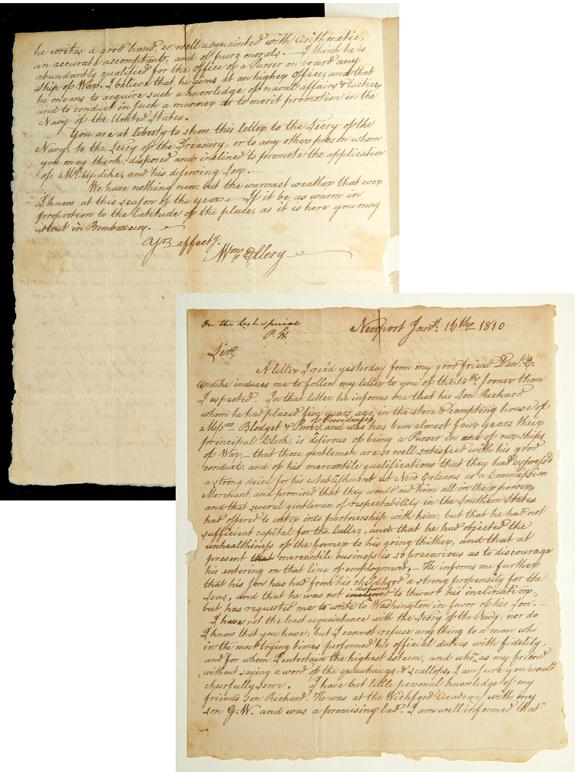 On the last special
P. H.
Newport Jany. 16th 1810
Sir,
A letter I rec'd yesterday from my good friend Danl. E.
Updike induces me to follow my letter to you of the 14th sooner than
I expected. In that letter he informs me that his Son Richard
whom he had placed five years ago in the store & compting house of
Messrs. Blodget & Power, of Providence, and who has been almost four years their
principal Clerk, is desirous of being a Purser in one of our ships
of War,– that those gentlemen are so well satisfied with his good
conduct, and of his mercantile qualifications that they had expressed
a strong desire for his establishment at New Orleans as a Commission
Merchant and promised that they would aid him all in their power;
and that several gentlemen of respectability in the Southern States
had offered to enter into partnership with him; but that he had not
sufficient capital for the latter, and that he had objected the
unhealthiness of the former to his going thither, and that at
present that mercantile business is so precarious as to discourage
his entering on that line of employment.– He informs me further
that his Son has had from his childhood a strong propensity for the
Seas, and that he was not inclined disposed to thwart his inclination,
but has requested me to write to Washington in favor of his Son.–
I have not the least acquaintance with the Secry of the Navy, nor do
I know that you have; but I cannot refuse any thing to a man who
in the most trying times performed his official duties with fidelity,
and for whom I entertain the highest esteem, and who, as my friend
without saying a word of the quauhaugs & scallops, I am sure you would
chearfully serve. I have but little personal knowledge of my
friends Son Richard. He was at the Wickford Academy with my
son G. W. and was a promising lad. I am well informed that
he writes a good hand, is well acquainted with Arithmetic,
an accurate accomptant, and of pure morals.– I think he is
abundantly qualified for the office of a Purser on board any
ship of War. I believe that he aims at an higher Office, and that
he means to acquire such a knowledge of naval affairs & tactics,
and to conduct in such a manner as to merit promotion in the
Navy of the United States.
You are at liberty to show this letter to the Secry of the
Navy, to the Secry of the Treasury, or to any other person whom
you may think disposed and inclined to promote the application
of Mr. Updike, and his deserving Son.
We have nothing new, but the warmest weather that ever
I knew at this season of the year.– If it be as warm in
proportion to the latitude of the place, as it is here you may
strut in Bombazeen.
Yrs affecty.
Wm Ellery